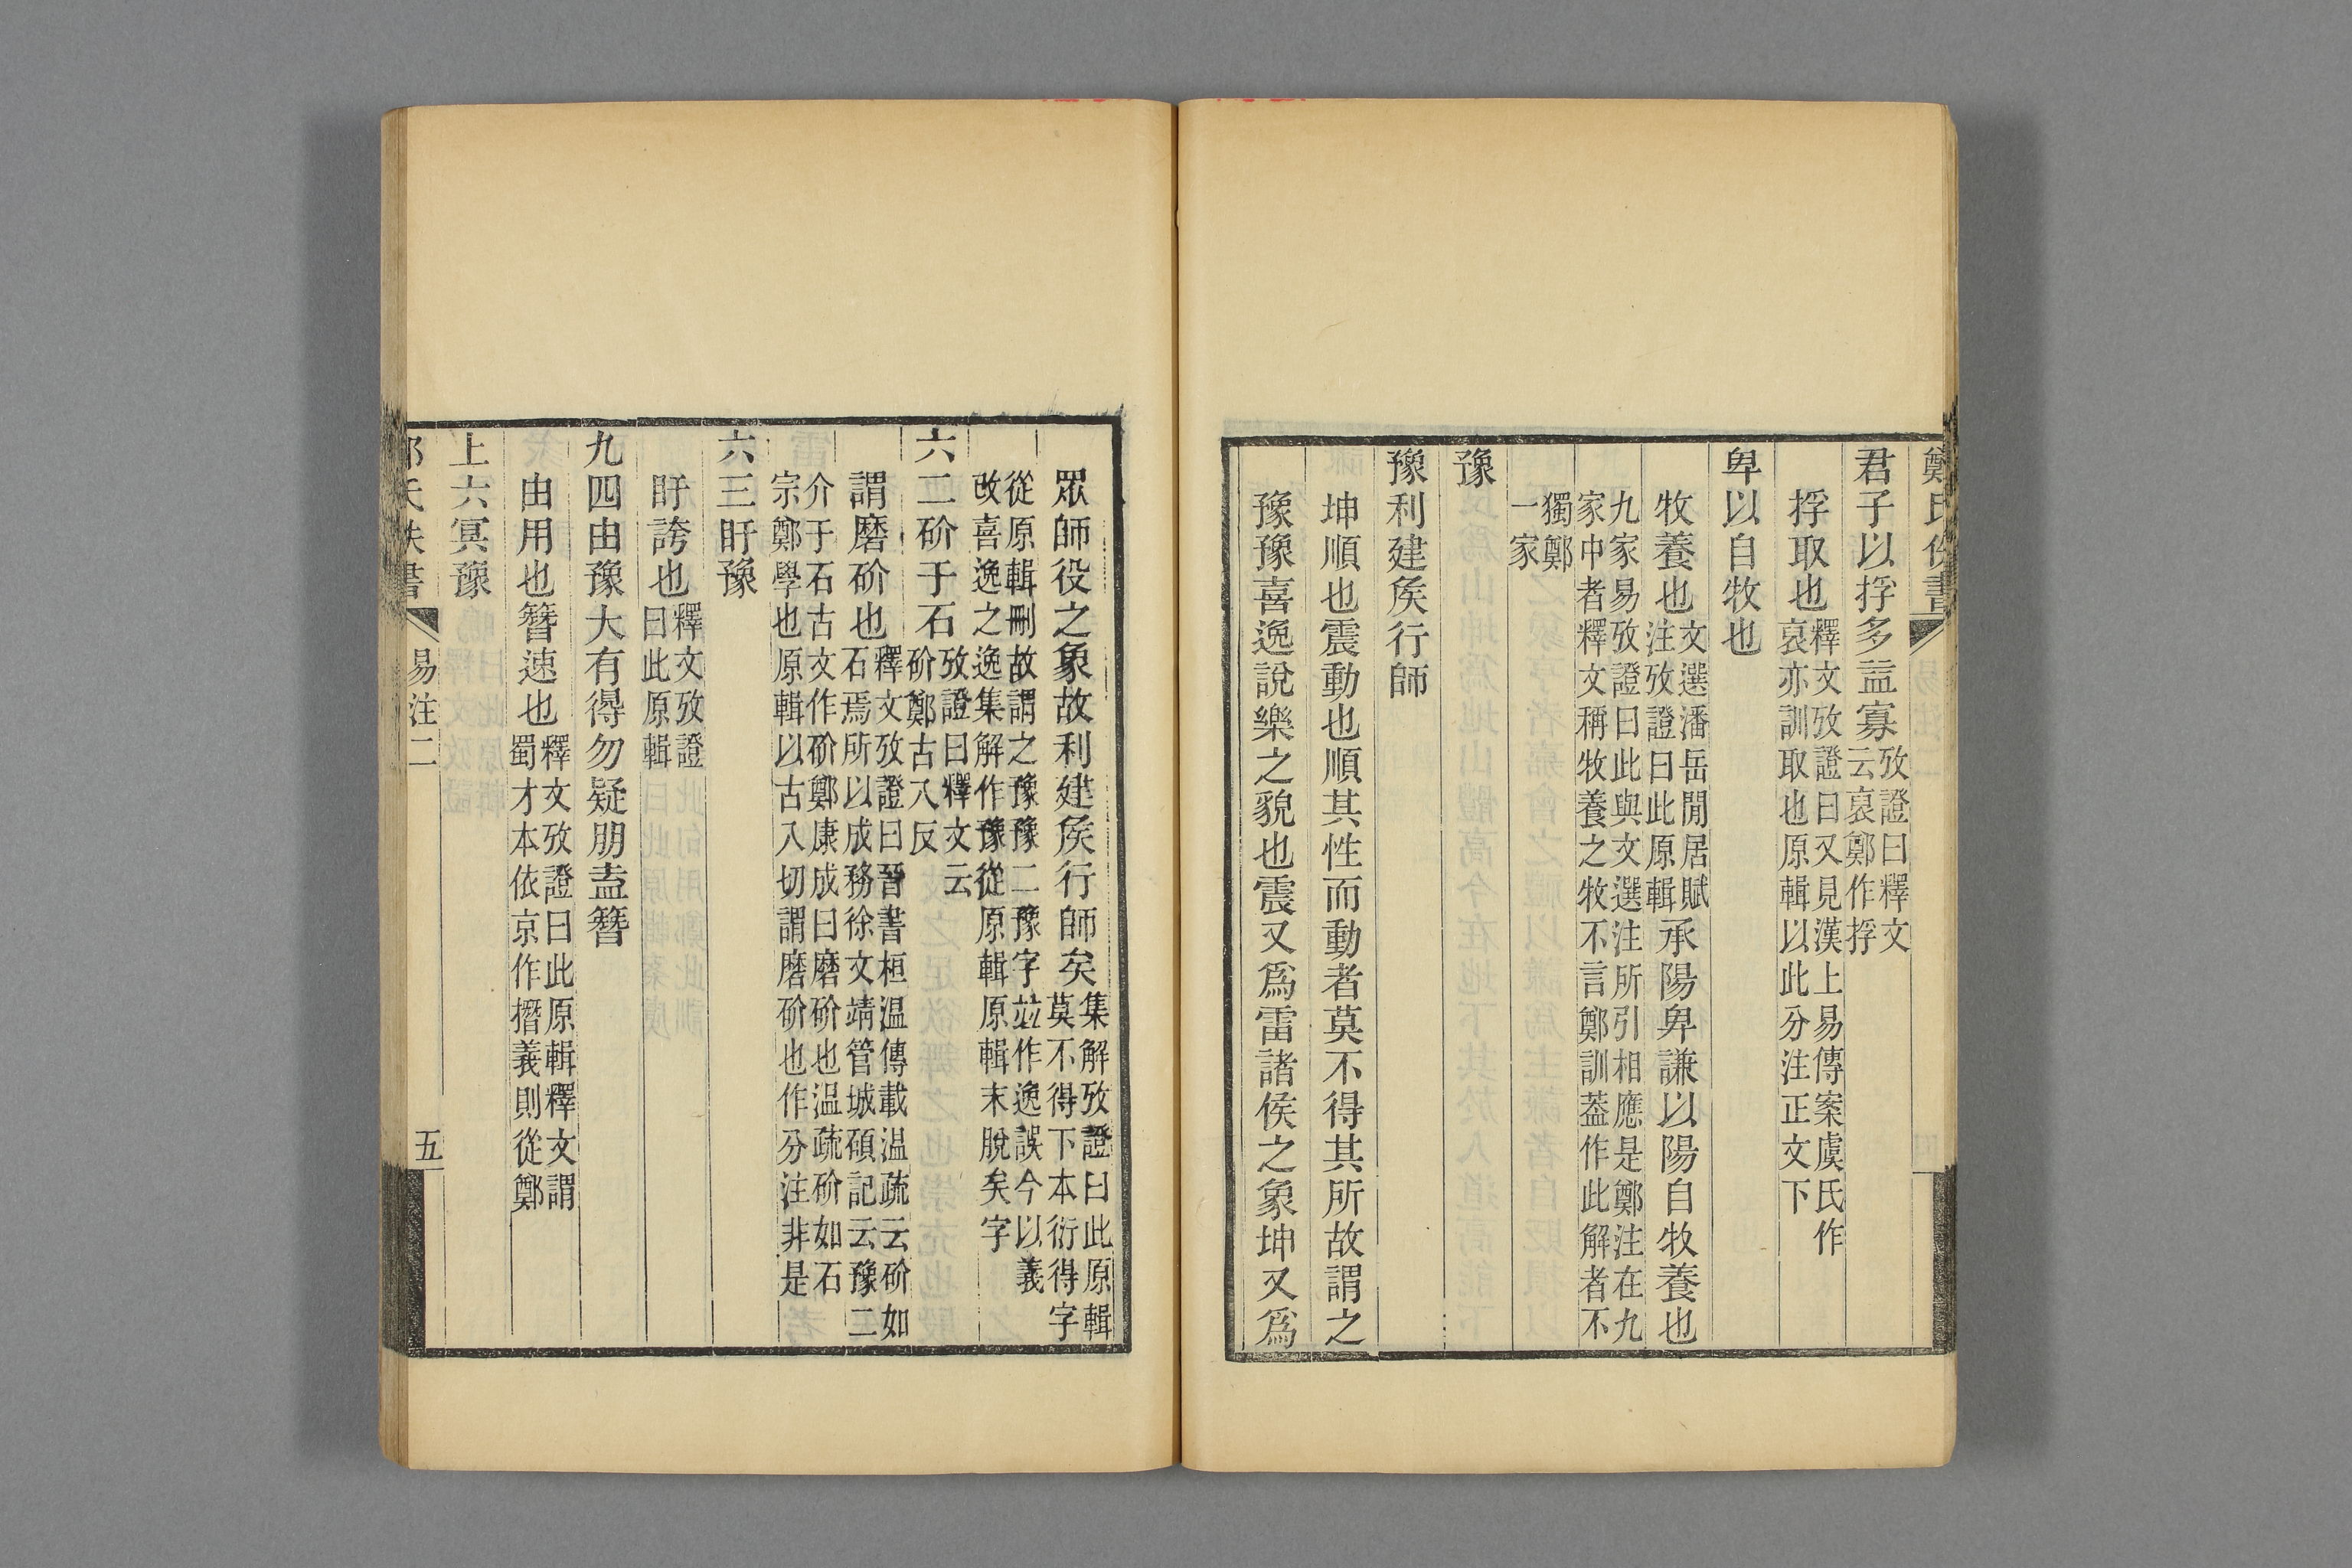 鄭氏佚書
君子以捊多益寡攷證曰釋文云裒鄭作捊
捊取也釋文攷證曰又見漢上易傳案虞氏作裒亦訓取也原輯以此分注正文下
卑以自牧也
牧養也文選潘岳閒居賦注攷證曰此原輯承陽卑謙以陽自牧養也
九家易攷證曰此與文選注所引相應是鄭注在九家中者釋文稱牧養之牧不言鄭訓葢作此解者不
獨鄭一家
豫
豫利建矦行師
坤順也震動也順其性而動者莫不得其所故謂之
豫豫喜逸說樂之貌也震又爲雷諸侯之象坤又爲
眾師役之象故利建矦行師矣集解攷證曰此原輯莫不得下本衍得字
從原輯刪故謂之豫豫二豫字竝作逸誤今以義改喜逸之逸集解作豫從原輯原輯末脫矣字
六二砎于石攷證曰釋文云砎鄭古八反
謂磨砎也釋文攷證曰晉書桓温傳載温疏云砎如石焉所以成務徐文靖管城碩記云豫二
介于石古文作砎鄭康成曰磨砎也温疏砎如石宗鄭學也原輯以古入切謂磨砎也作分注非是
六三盱豫
盱誇也釋文攷證曰此原輯
九四由豫大有得勿疑朋盍簪
由用也簪速也釋文攷證曰此原輯釋文謂蜀才本依京作撍義則從鄭
上六冥豫
鄭氏佚書 易注二 五